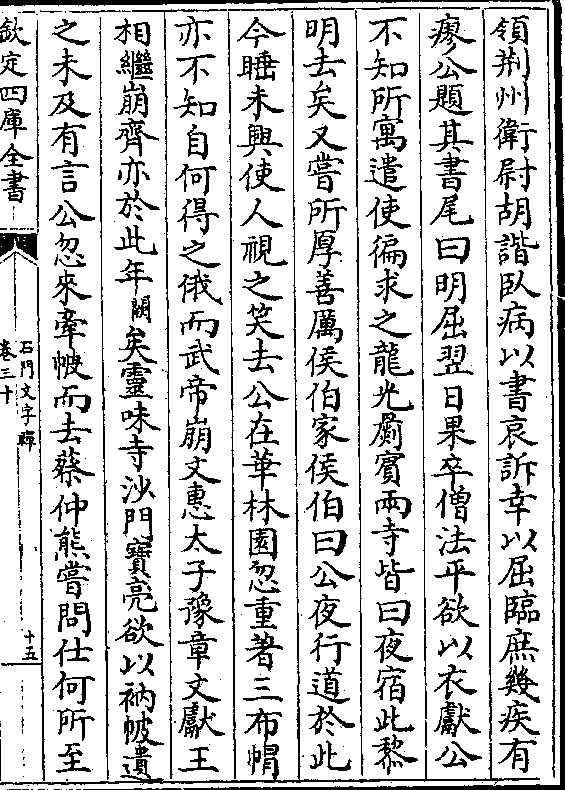 領荆州衛尉胡諧臥病以書哀訴幸以屈臨庶幾疾有
瘳公題其書尾曰明屈翌日果卒僧法平欲以衣獻公
不知所寓遣使徧求之龍光罽賓兩寺皆曰夜宿此黎
明去矣又嘗所厚善厲侯伯家侯伯曰公夜行道於此
今睡未興使人視之笑去公在華林園忽重著三布帽
亦不知自何得之俄而武帝崩文惠太子豫章文獻王
相繼崩齊亦於此年闕矣靈味寺沙門寶亮欲以衲帔遺
之未及有言公忽來牽帔而去蔡仲熊嘗問仕何所至
欽定四庫全書
石門文字禪
卷三十
十五